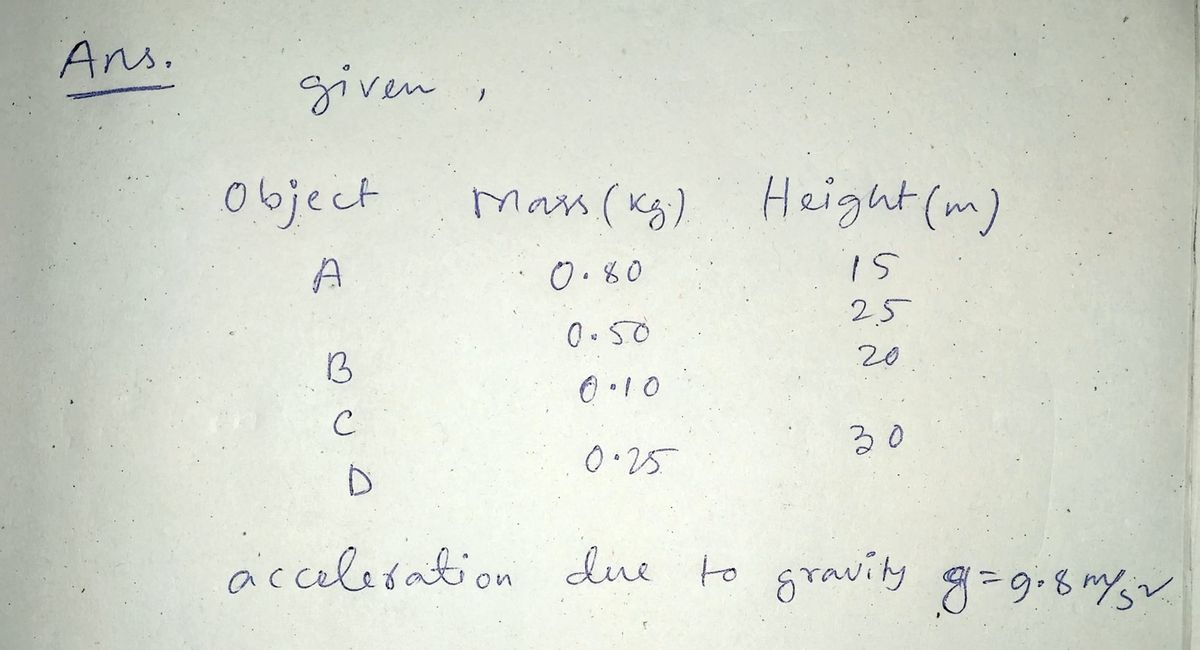 Ans.
given,
Object Mass (Kg) Height (m)
A 0.80 15
0.50 25
B 0.10 20
C
D 0.25 30
acceleration due to gravity g = 9.8 m/s²